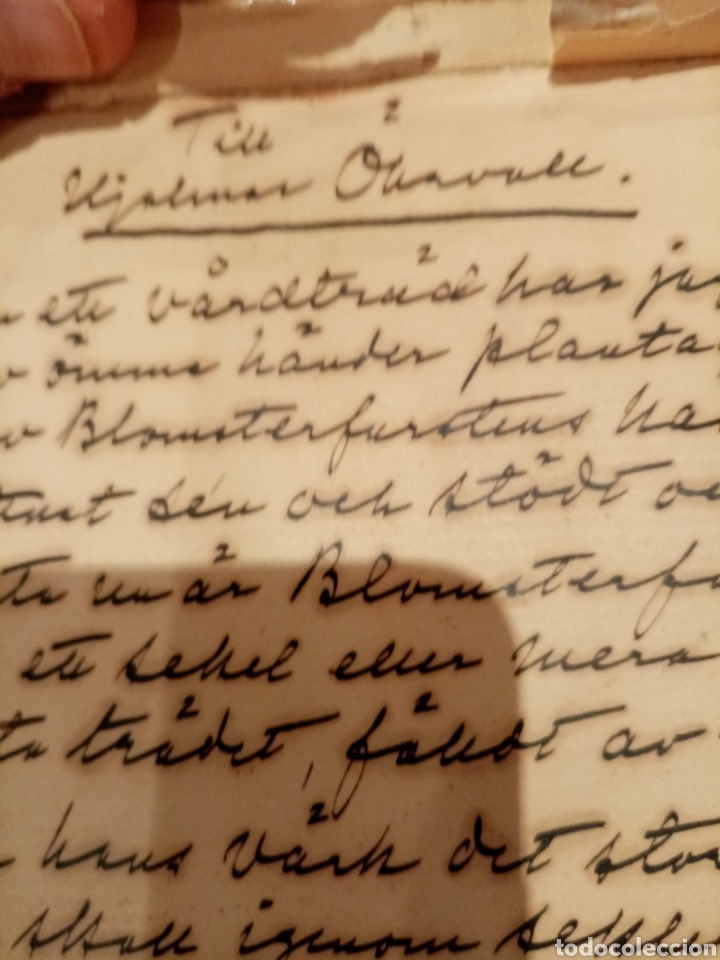 Till
Hjalmar Öhrvall.
ett vårdträd har jag
ömma händer planta
Blomsterfurstens ha
sén och stödt oc
nu är Blomsterfu
ett sekel eller mera
trädet, fäldt av
hans värk det stor
skall igenom sekle
todocoleccion